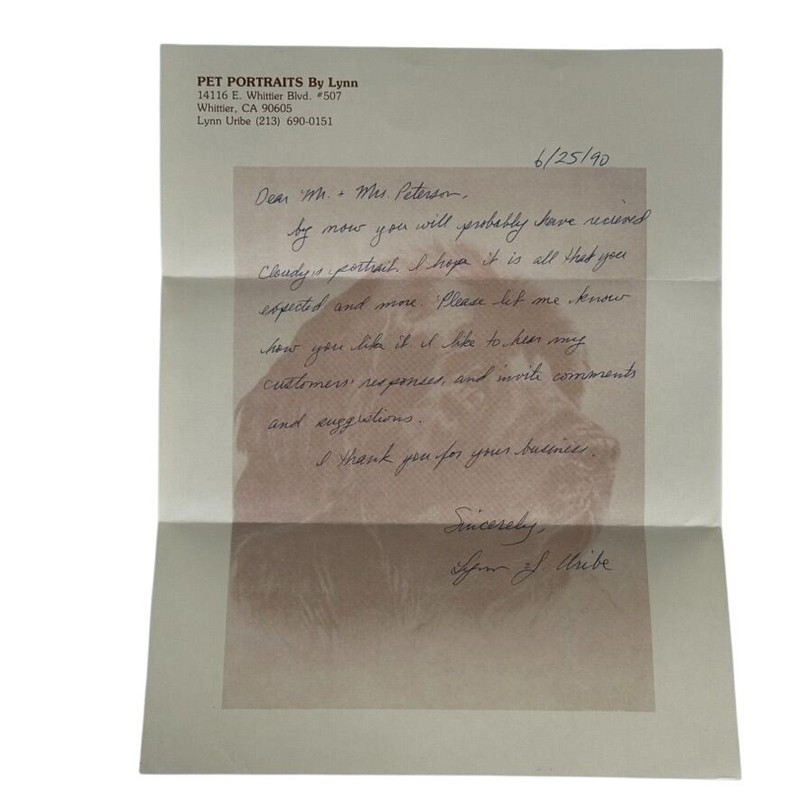 PET PORTRAITS By Lynn
14116 E. Whittier Blvd. #507
Whittier, CA 90605
Lynn Uribe (213) 690-0151
6/25/90
Dear Mr. + Mrs. Peterson,
by now you will probably have recieved
Cloudy's portrait. I hope it is all that you
expected and more. Please let me know
how you like it. I like to hear my
customers' responses, and invite comments
and suggestions.
I thank you for your business.
Sincerely,
Lynn J. Uribe